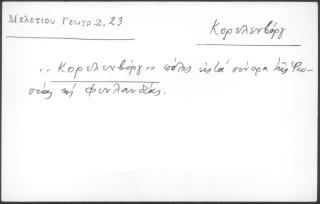 Μελετίου Γεωγρ.2, 23
Κορελενβόργ
‹‹ Κορελενβόργ ›› πόλις εἰς τά σύνορα τῆς Ρωσ-
σίας τῆς Φινλανδίας.